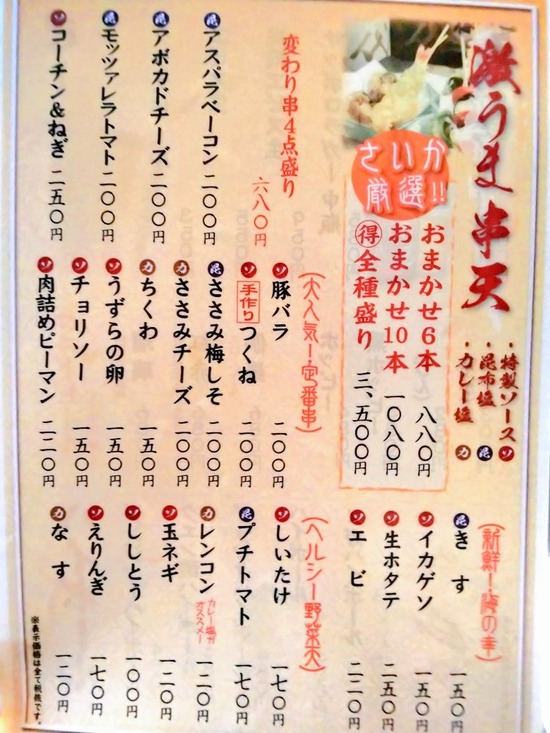 激うま串天
・特製ソース ソ
・昆布塩 昆
・カレー塩 カ
さいか厳選!!
おまかせ6本 八八〇円
おまかせ10本 一〇八〇円
得 全種盛り 三、五〇〇円
変わり串4点盛り 六八〇円
昆 アスパラベーコン 二〇〇円
昆 アボカドチーズ 二〇〇円
昆 モッツァレラトマト 二〇〇円
ソ コーチン&ねぎ 二五〇円
(大人気!定番串)
ソ 豚バラ 二〇〇円
ソ 手作り つくね 二〇〇円
昆 ささみ梅しそ 二〇〇円
カ ささみチーズ 二〇〇円
カ ちくわ 一五〇円
ソ うずらの卵 一五〇円
ソ チョリソー 一五〇円
ソ 肉詰めピーマン 二二〇円
(新鮮!海の幸)
昆 きす 一五〇円
ソ イカゲソ 一五〇円
ソ 生ホタテ 二五〇円
ソ エビ 二二〇円
(ヘルシー野菜天)
ソ しいたけ 一七〇円
昆 プチトマト 一七〇円
カ レンコン カレー塩がオススメー 一二〇円
ソ 玉ネギ 一二〇円
ソ ししとう 一〇〇円
ソ えりんぎ 一七〇円
カ なす 一二〇円
※表示価格は全て税抜です。